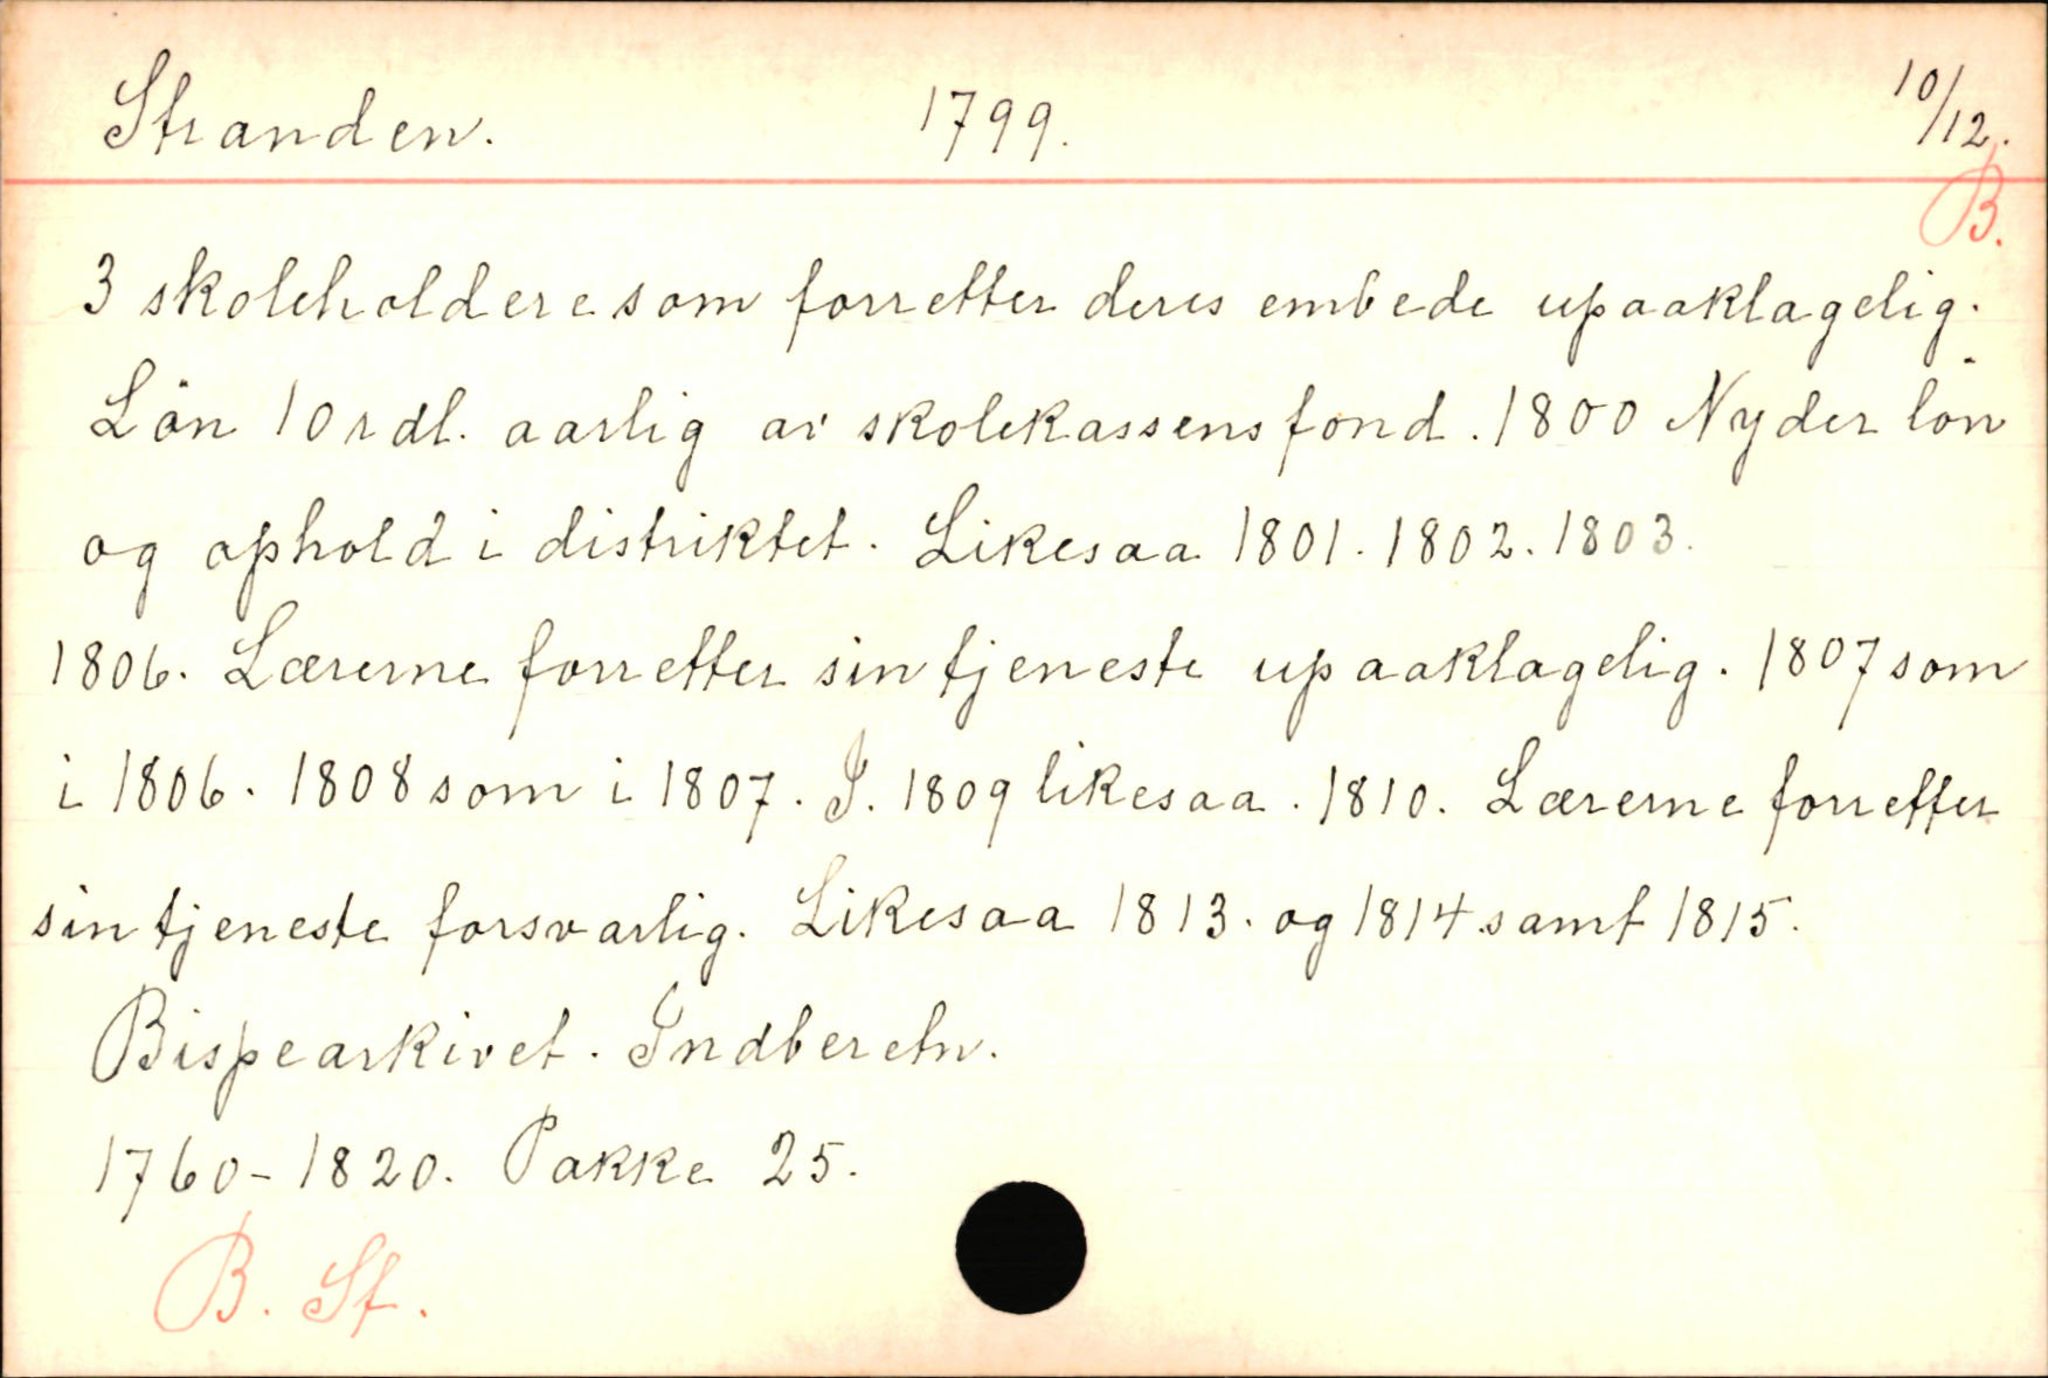 Stranden. 1799. 10/12.
B.
3 skoleholdere som forretter deres embede upaaklagelig.
Lön 10 rdl. aarlig av skolekassens fond. 1800 Nyder lön
og ophold i distriktet. Likesaa 1801. 1802. 1803.
1806. Lærerne forretter sin tjeneste upaaklagelig. 1807 som
i 1806. 1808 som i 1807. I. 1809 likesaa. 1810. Lærerne forretter
sin tjeneste forsvarlig. Likesaa 1813. og 1814. samt 1815.
Bispearkivet. Indberetn.
1760-1820. Pakke 25.
B. St.